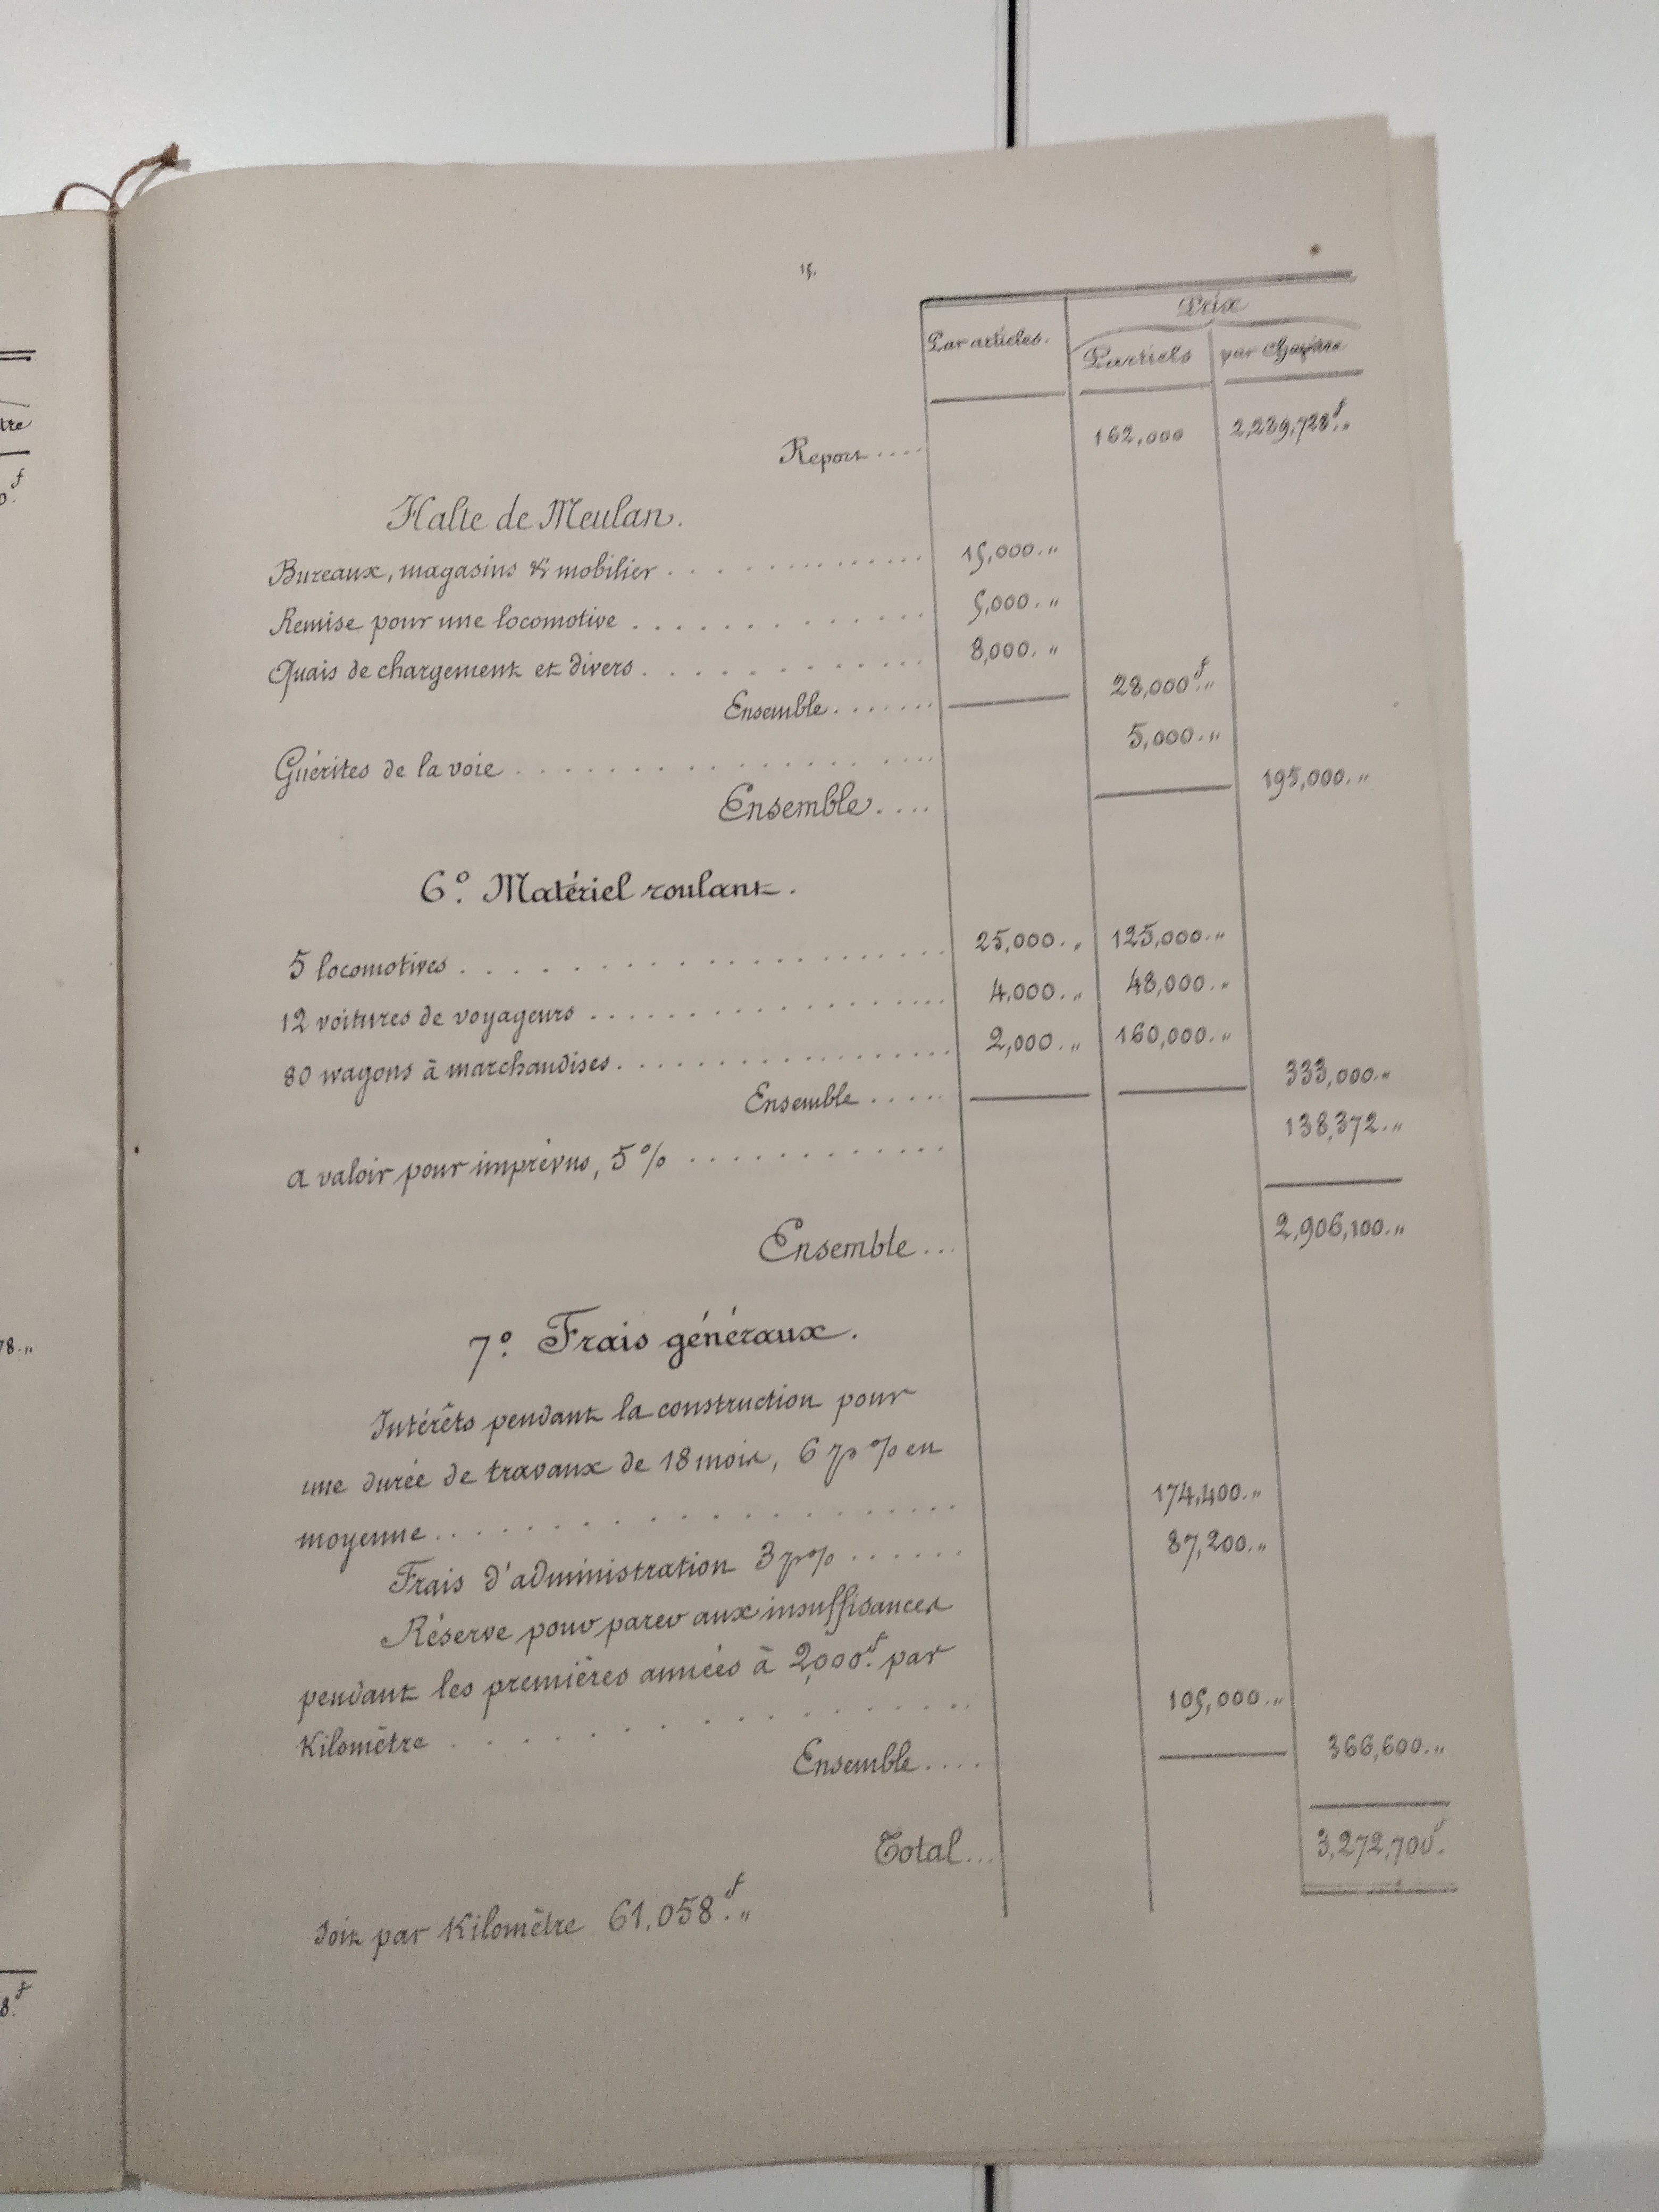 tre
f
0.
78.„
f
8.
15.
Prix
Par articles.
Partiels
par Chapitre
Report .... 162,000 2,239,728f.„
Halte de Meulan.
Bureaux, magasins & mobilier .............. 15,000.„
Remise pour une locomotive ............. 5,000.„
Quais de chargement et divers ............ 8,000.„
Ensemble ....... 28,000f.„
Guérites de la voie .................. 5,000.„
Ensemble .... 195,000.„
6º. Matériel roulant.
5 locomotives .................... 25,000.„ 125,000.„
12 voitures de voyageurs ................ 4,000.„ 48,000.„
80 wagons à marchandises ................. 2,000.„ 160,000.„
Ensemble ..... 333,000.„
a valoir pour imprévus, 5% ............ 138,372.„
Ensemble ... 2,906,100.„
7º. Frais généraux.
Intérêts pendant la construction pour
une durée de travaux de 18 mois, 6 p % en
moyenne .................... 174,400.„
Frais d'administration 3 p% ...... 87,200.„
Réserve pour parer aux insuffisances
pendant les premières années à 2,000f. par
Kilomètre ................ 105,000.„
Ensemble .... 366,600.„
Total ... 3,272,700f.
Soit par Kilomètre 61.058f.„